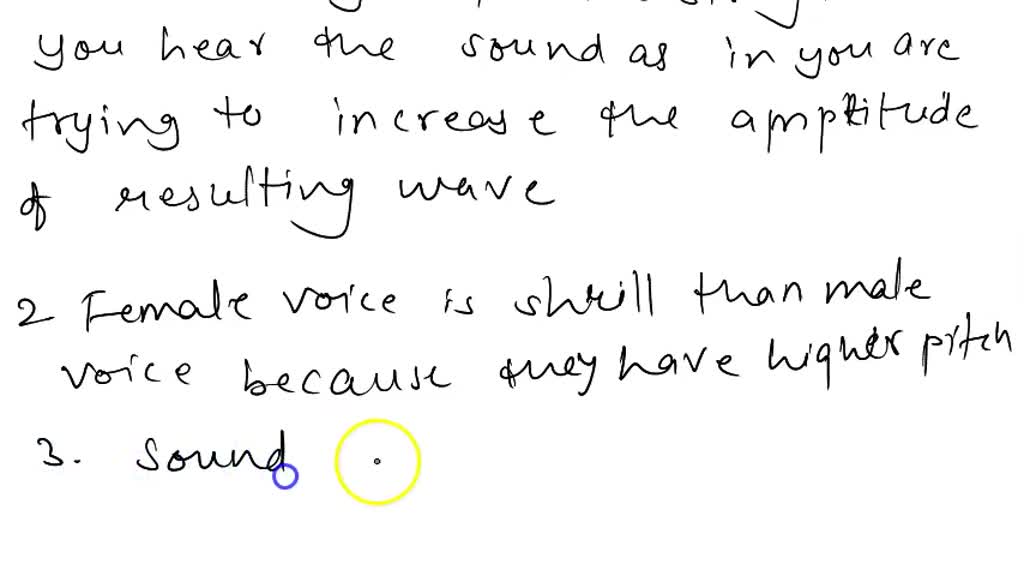 you hear the sound as in you are
trying to increase the amplitude
of resulting wave
2 Female voice is shrill than male
voice because they have higher pitch
3. sound